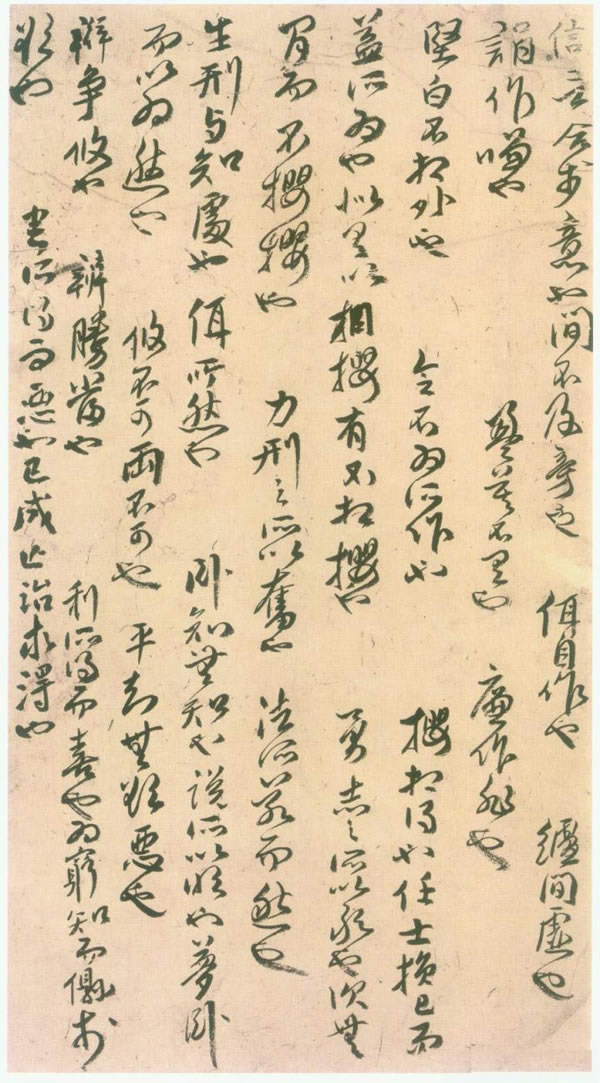 信言合於意也間不及旁也 佴自作也 纑間虛也
詪作嗛也 盈莫不有也 廉作非也
堅白不相外也 令不為所作也 攖相得也任士損己而
益所為也似是以相攖有不相攖也 勇志之所以敢也次無
間而不攖攖也 力刑之所以奮也 法所若而然也
生刑与知處也 佴所然也 臥知無知也說所以明也夢臥
而以為然也 攸不可兩不可也 平知無欲惡也
辯爭攸也 辯勝當也 利所得而喜也為窮知而縣於
欲也 害所得而惡也已成亡治求得也